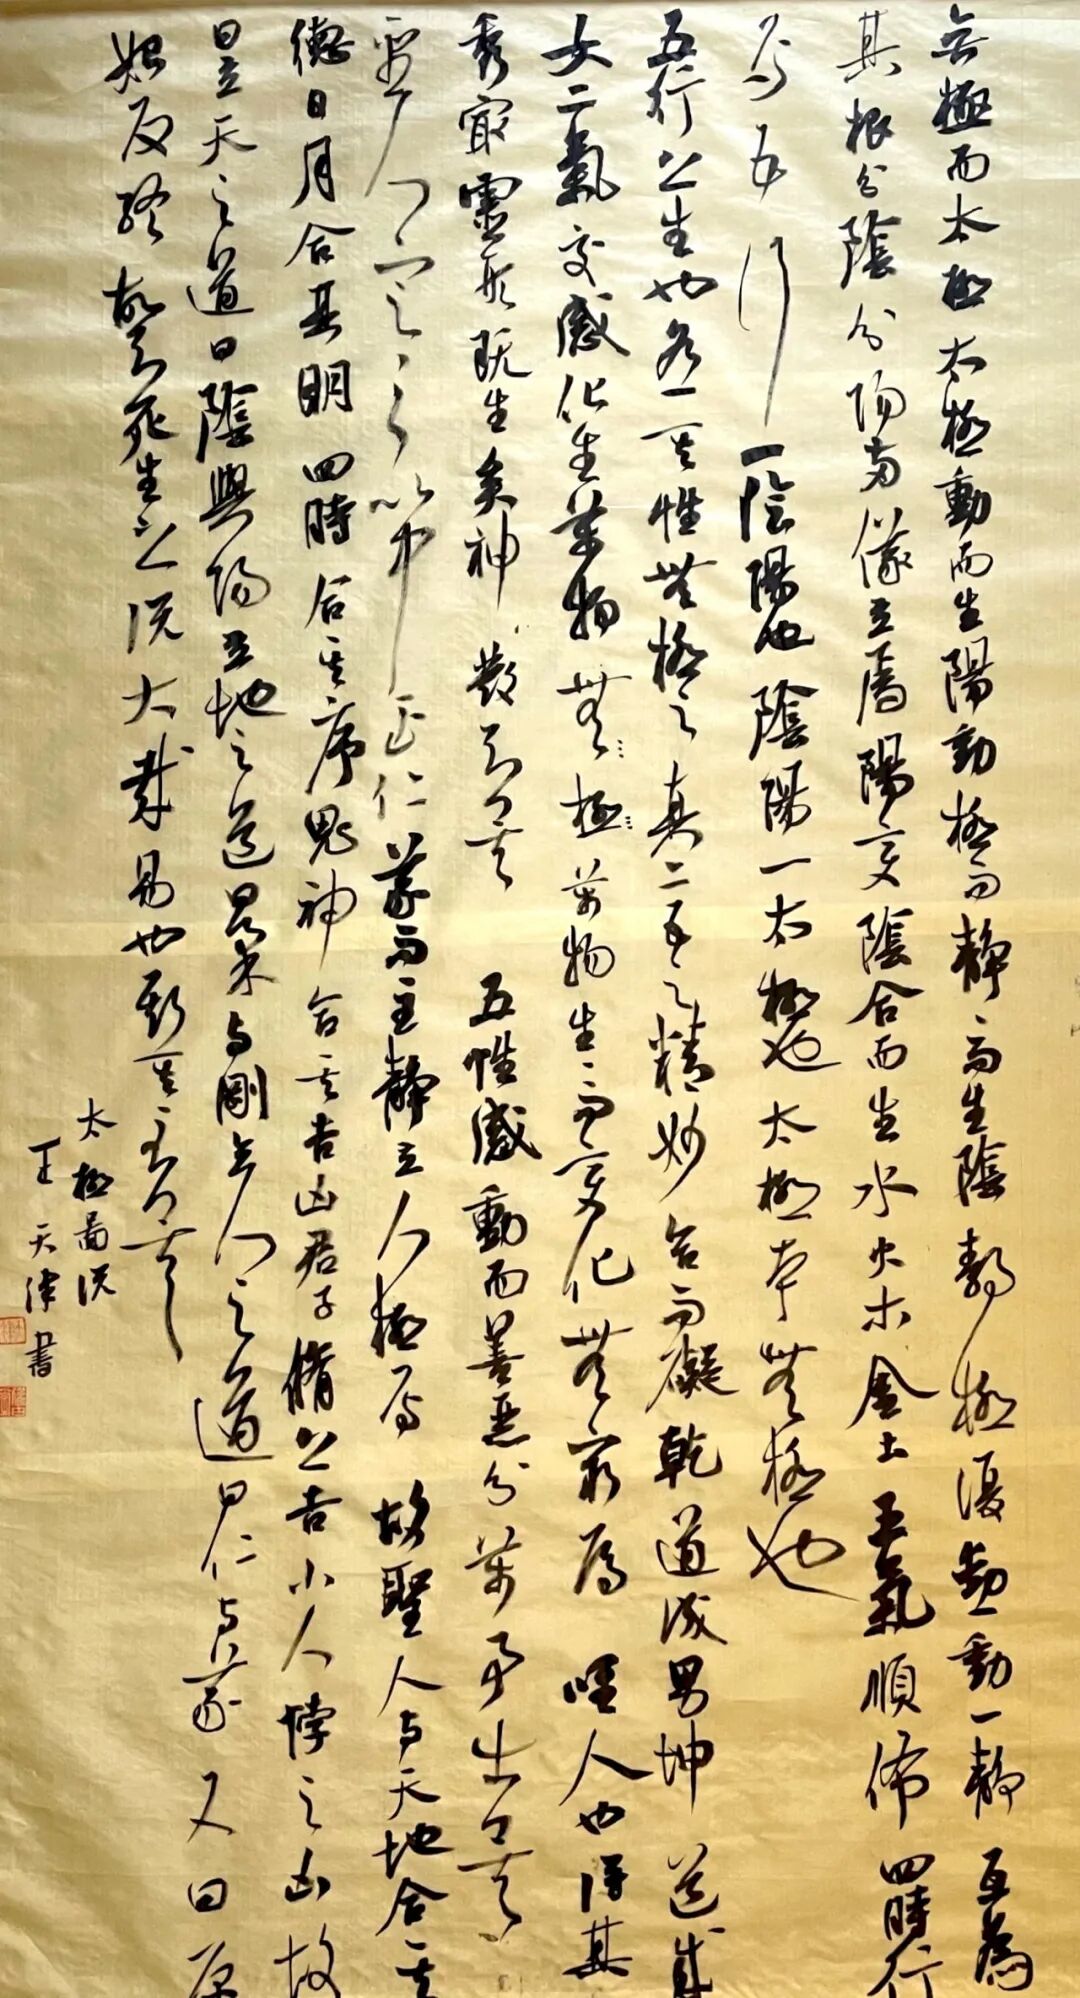 無極而太極太極動而生陽動極而靜靜而生陰靜極復動一動一靜互為
其根分陰分陽兩儀立焉陽變陰合而生水火木金土五氣順佈四時行
焉五行一陰陽也陰陽一太極也太極本無極也
五行之生也各一其性無極之真二五之精妙合而凝乾道成男坤道成
女二氣交感化生萬物萬物生生而變化無窮焉唯人也得其
秀最靈形既生矣神發知矣五性感動而善惡分萬事出矣
聖人定之以中正仁義而主靜立人極焉故聖人與天地合其
德日月合其明四時合其序鬼神合其吉凶君子脩之吉小人悖之凶故
曰立天之道曰陰與陽立地之道曰柔與剛立人之道曰仁與義又曰原
始反終故知死生之說大哉易也斯其至矣
太極圖說
王天津書